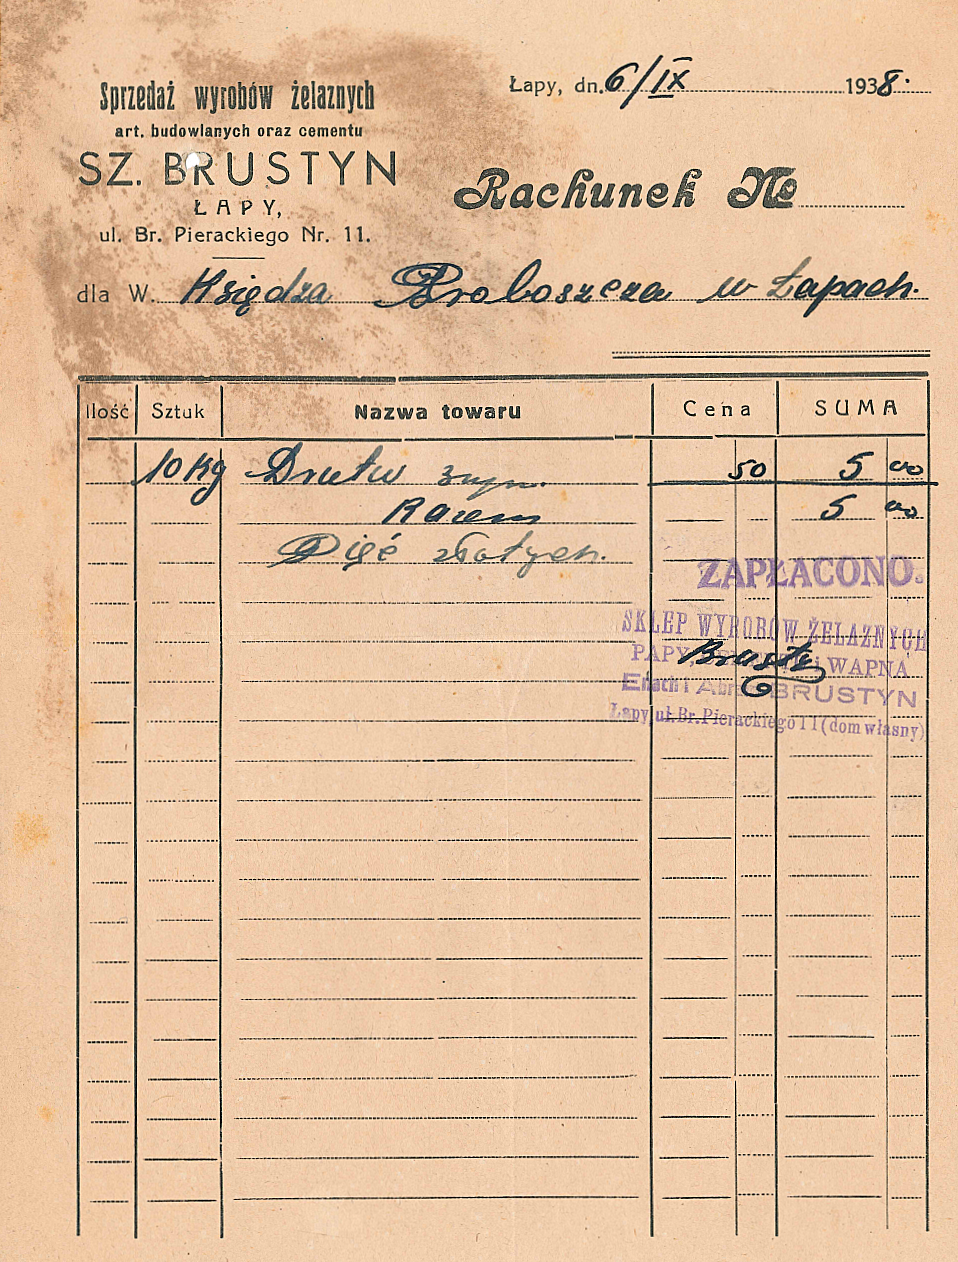 Sprzedaż wyrobów żelaznych
art. budowlanych oraz cementu
SZ. BRUSTYN
ŁAPY,
ul. Br. Pierackiego Nr. 11.
Łapy, dn. 6/IX 1938.
Rachunek №
dla W. Księdza Proboszcza w Łapach.
Ilość Sztuk Nazwa towaru Cena SUMA
10 Kg Drutu 50 5 00
Razem 5 00
Pięć złotych.
ZAPŁACONO.
SKLEP WYROBÓW ŻELAZNYCH
PAPY, i WAPNA
BRUSTYN
Łapy, ul. Br. Pierackiego 11 (dom własny)